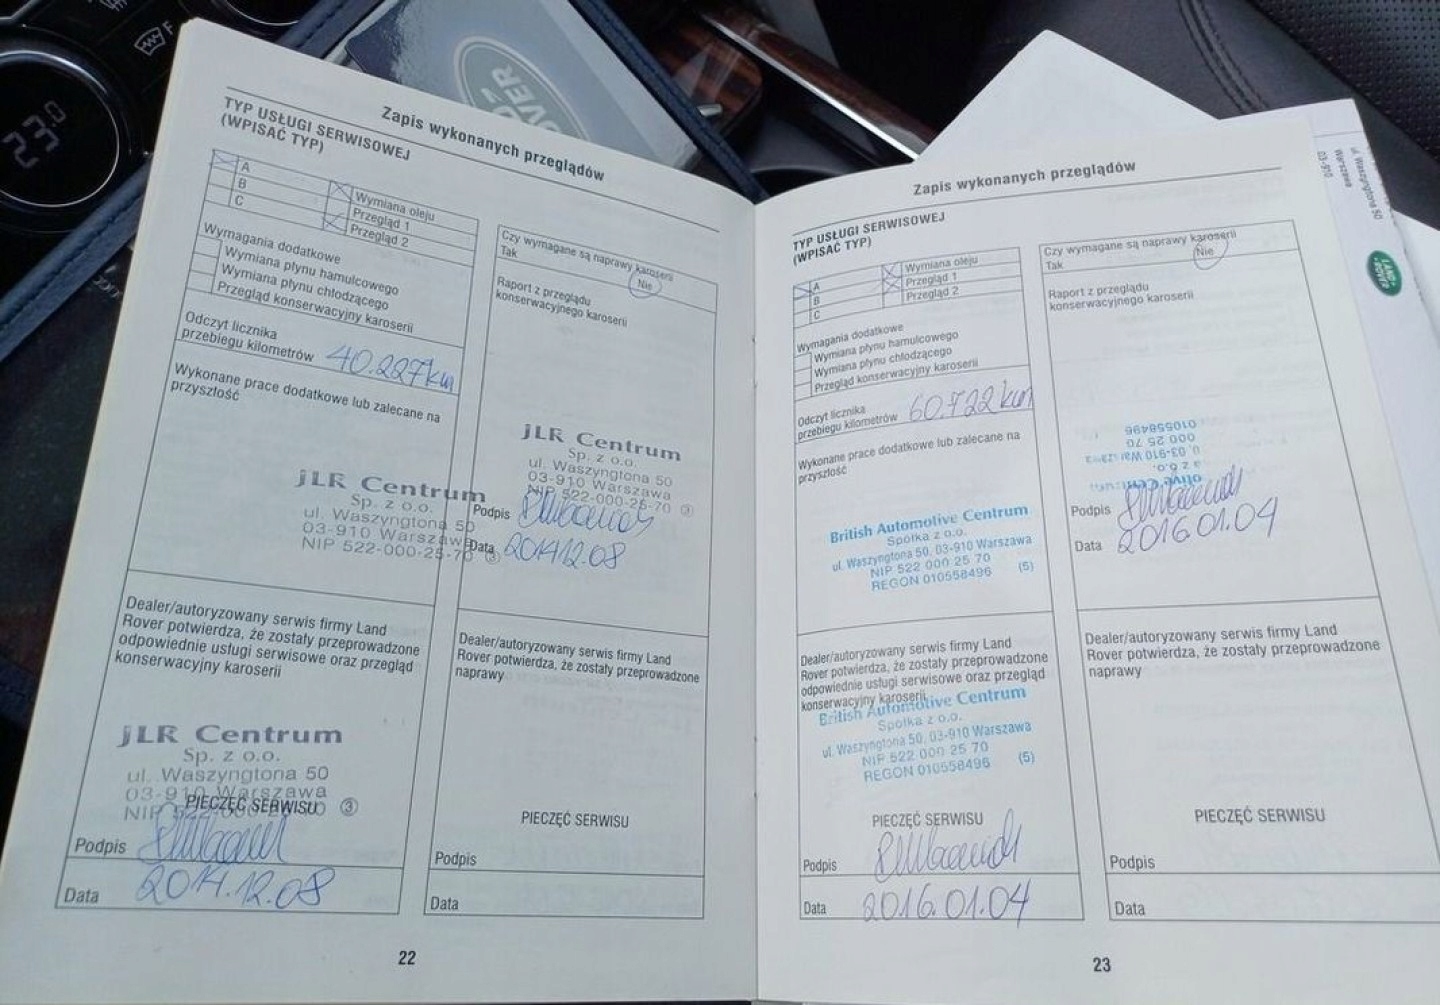 23.0
F
ROVER
Zapis wykonanych przeglądów
TYP USŁUGI SERWISOWEJ
(WPISAĆ TYP)
A
B
C
Wymiana oleju
Przegląd 1
Przegląd 2
Wymagania dodatkowe
Wymiana płynu hamulcowego
Wymiana płynu chłodzącego
Przegląd konserwacyjny karoserii
Odczyt licznika
przebiegu kilometrów 40.227km
Wykonane prace dodatkowe lub zalecane na
przyszłość
jLR Centrum
Sp. z o.o.
ul. Waszyngtona 50
03-910 Warszawa
NIP 522-000-25-70 3
Dealer/autoryzowany serwis firmy Land
Rover potwierdza, że zostały przeprowadzone
odpowiednie usługi serwisowe oraz przegląd
konserwacyjny karoserii
jLR Centrum
Sp. z o.o.
ul. Waszyngtona 50
03-910 Warszawa
NIP 522-000-25-70 3
PIECZĘĆ SERWISU
Podpis
Data 2014.12.08
Czy wymagane są naprawy karoserii
Tak Nie
Raport z przeglądu
konserwacyjnego karoserii
jLR Centrum
Sp. z o.o.
ul. Waszyngtona 50
03-910 Warszawa
NIP 522-000-25-70 3
Podpis
Data 2014.12.08
Dealer/autoryzowany serwis firmy Land
Rover potwierdza, że zostały przeprowadzone
naprawy
PIECZĘĆ SERWISU
Podpis
Data
22
Zapis wykonanych przeglądów
TYP USŁUGI SERWISOWEJ
(WPISAĆ TYP)
A
B
C
Wymiana oleju
Przegląd 1
Przegląd 2
Wymagania dodatkowe
Wymiana płynu hamulcowego
Wymiana płynu chłodzącego
Przegląd konserwacyjny karoserii
Odczyt licznika
przebiegu kilometrów 60.722km
Wykonane prace dodatkowe lub zalecane na
przyszłość
British Automotive Centrum
Spółka z o.o.
ul. Waszyngtona 50, 03-910 Warszawa
NIP 522 000 25 70
REGON 010558496 (5)
Dealer/autoryzowany serwis firmy Land
Rover potwierdza, że zostały przeprowadzone
odpowiednie usługi serwisowe oraz przegląd
konserwacyjny karoserii
British Automotive Centrum
Spółka z o.o.
ul. Waszyngtona 50, 03-910 Warszawa
NIP 522 000 25 70
REGON 010558496 (5)
PIECZĘĆ SERWISU
Podpis
Data 2016.01.04
Czy wymagane są naprawy karoserii
Tak Nie
Raport z przeglądu
konserwacyjnego karoserii
otive Centrum
a z o.o.
0, 03-910 Warszawa
000 25 70
010558496
Podpis
Data 2016.01.04
Dealer/autoryzowany serwis firmy Land
Rover potwierdza, że zostały przeprowadzone
naprawy
PIECZĘĆ SERWISU
Podpis
Data
23
ul. Waszyngtona 50
Warszawa
03-910
LAND
ROVER